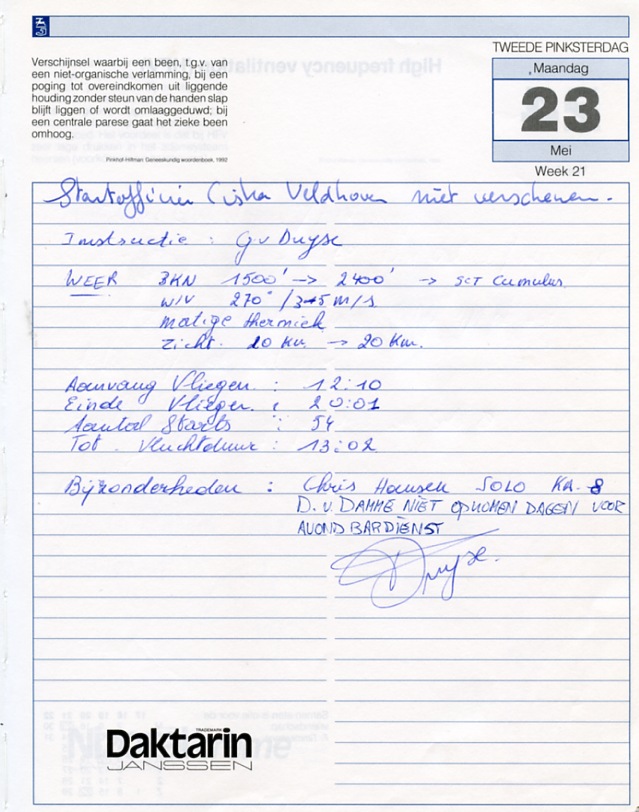 TWEEDE PINKSTERDAG
Maandag
23
Mei
Week 21
Verschijnsel waarbij een been, t.g.v. van
een niet-organische verlamming, bij een
poging tot overeindkomen uit liggende
houding zonder steun van de handen slap
blijft liggen of wordt omlaaggeduwd; bij
een centrale parese gaat het zieke been
omhoog.
Pinkhof-Hilfman. Geneeskundig woordenboek, 1992
Startofficier Ciska Veldhoven niet verschenen.
Instructie : G v Duyse
WEER BKN 1500' → 2400' → SCT Cumulus
W/V 270° / 3-5 M/S
matige thermiek
Zicht. 10 Km. → 20 Km.
Aanvang Vliegen : 12:10
Einde Vliegen : 20:01
Aantal Starts : 54
Tot. Vluchtduur : 13:02
Bijzonderheden : Chris Hansen SOLO KA-8
D. v. DAMME NIET OPKOMEN DAGEN VOOR
AVOND BARDIENST
Duyse.
TRADEMARK
Daktarin
JANSSEN